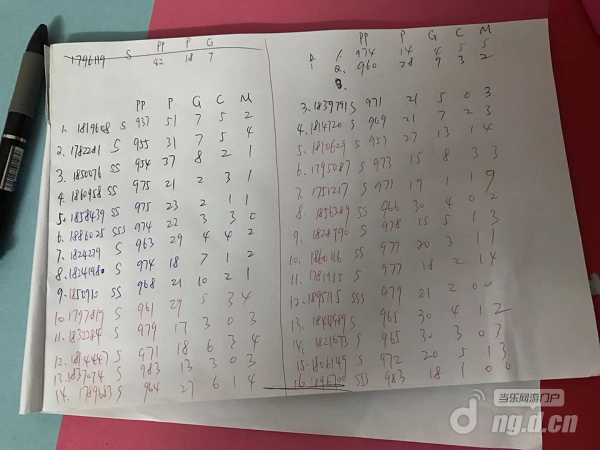 PP P G
1796119 S 42 18 7
PP P G C M
1. 1819608 S 937 51 7 5 2
2. 1782281 S 955 31 7 5 4
3. 1850076 SS 954 37 8 2 1
4. 1860958 SS 975 21 2 3 1
5. 1858439 SS 975 23 2 1 1
6. 1886025 SSS 974 22 3 3 0
7. 1824279 S 963 29 4 4 2
8. 1824198 S 974 18 7 1 2
9. 1850910 SS 968 21 10 2 1
10. 1797817 S 961 29 5 3 4
11. 1832284 S 979 17 3 0 3
12. 1814447 S 971 18 6 3 4
13. 1837074 S 983 13 3 0 3
14. 1789683 S 964 27 6 1 4
PP P G C M
1. 974 14 4 5 5
2. 960 28 9 3 2
3.
3. 1839791 S 971 21 5 0 3
4. 1814720 S 969 21 7 2 3
5. 1810629 S 957 27 13 1 4
6. 1795087 S 973 15 8 3 3
7. 1751217 S 971 19 1 1 9
8. 1856389 SS 966 30 4 0 2
9. 1828790 S 978 15 5 1 3
10. 1860116 SS 977 20 3 1 1
11. 1781915 S 977 18 2 1 4
12. 1895115 SSS 979 21 2 0 0
13. S 965 30 4 1 2
14. S 965 30 3 0 3
15. 1806149 S 972 20 5 1 3
16. 1896700 SSS 983 18 1 0 0
当乐网游门户
d.cn